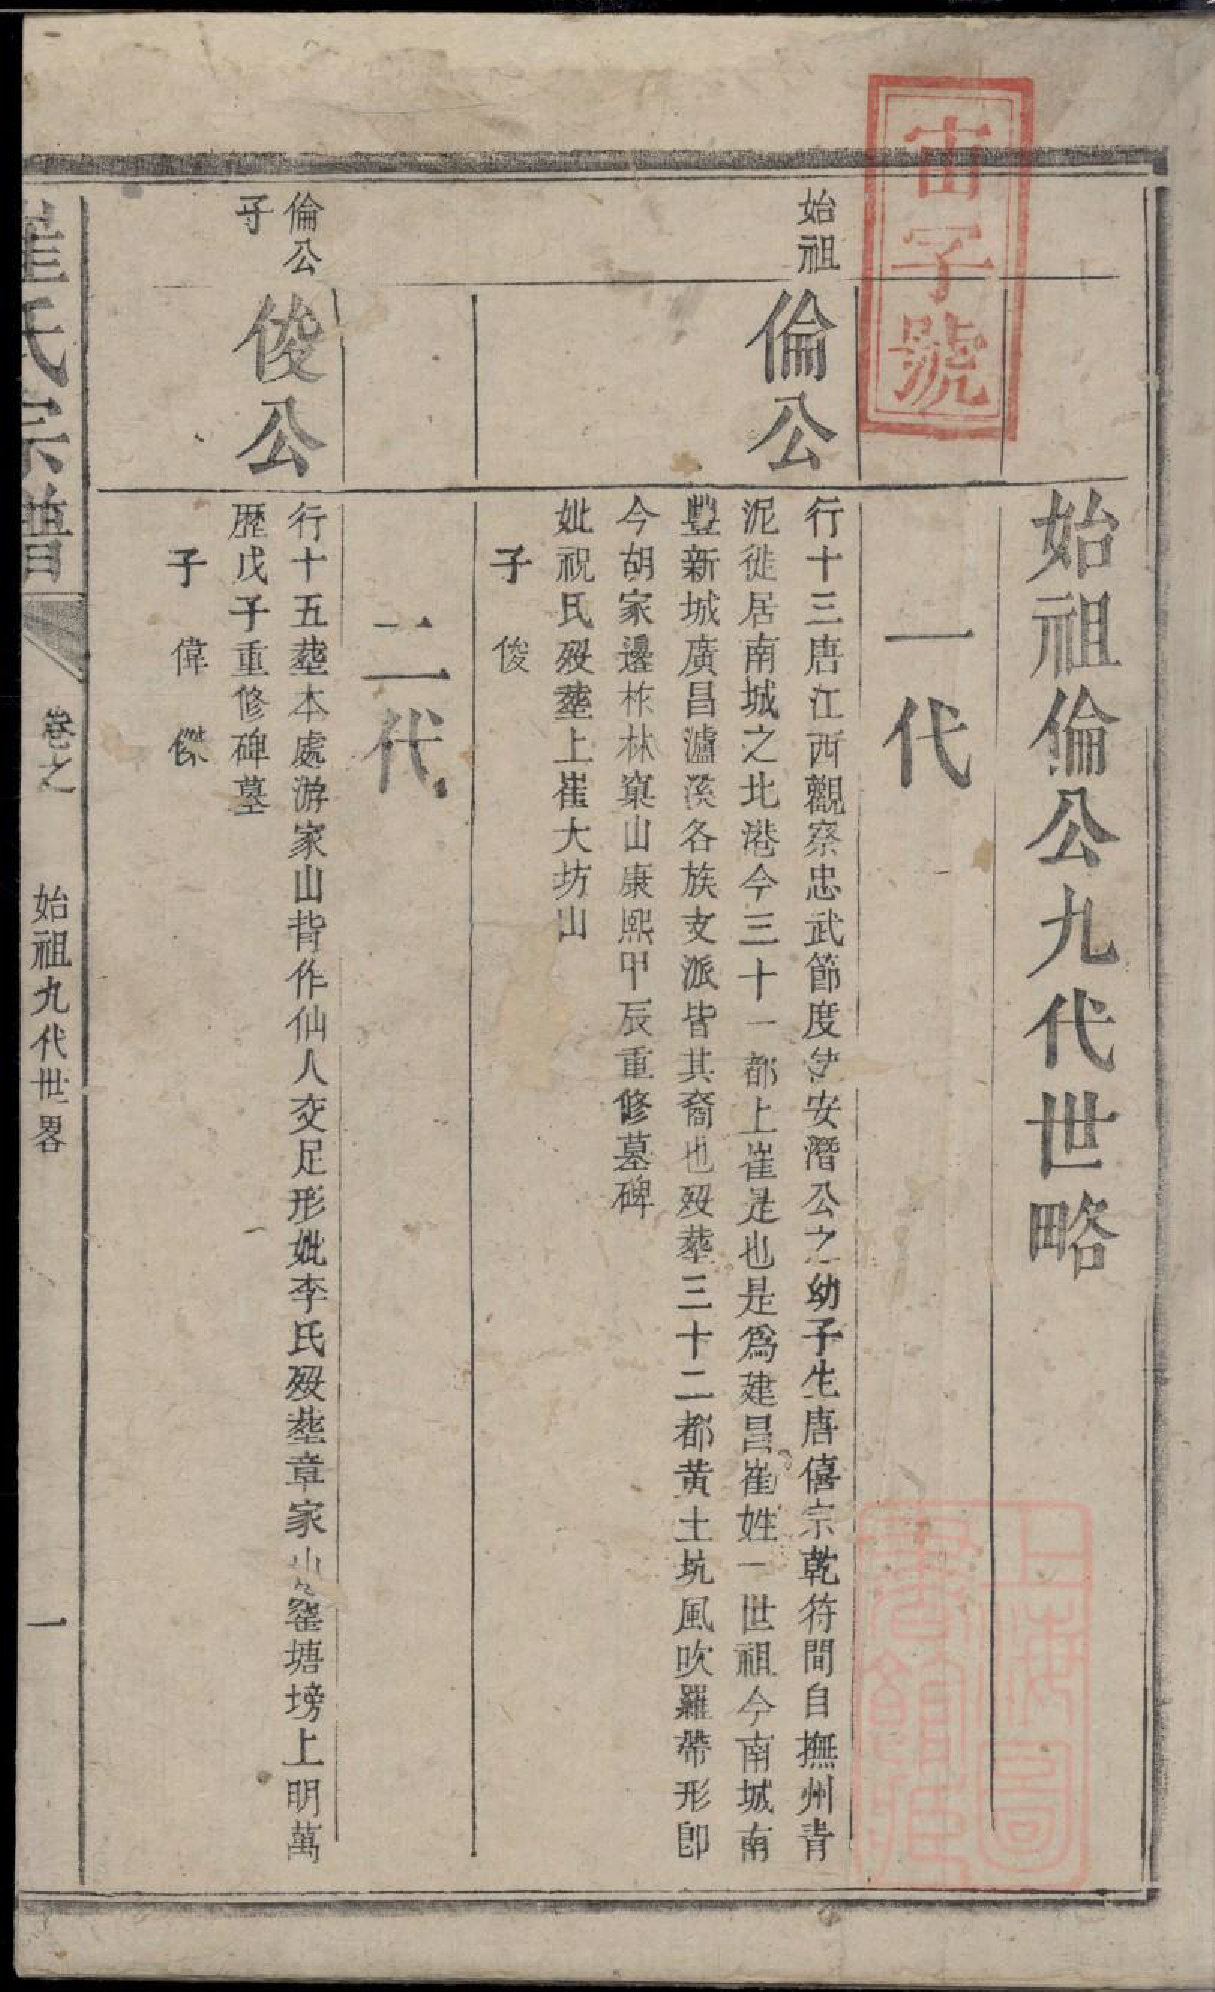 宙字號
始祖倫公九代世略
一代
始祖
倫公
行十三唐江西觀察忠武節度使安潛公之幼子生唐僖宗乾符間自撫州青
泥徙居南城之北港今三十一都上崔是也是爲建昌崔姓一世祖今南城南
豐新城廣昌瀘溪各族支派皆其裔也歿葬三十二都黃土坑風吹羅帶形卽
今胡家邊柞林窠山康熙甲辰重修墓碑
妣祝氏歿葬上崔大坊山
子 俊
二代
倫公
子
俊公
行十五葬本處游家山背作仙人交足形妣李氏歿葬章家山窰塘塝上明萬
歷戊子重修碑墓
子 偉 傑
崔氏宗譜
卷之
始祖九代世畧
一
上海圖
書館藏